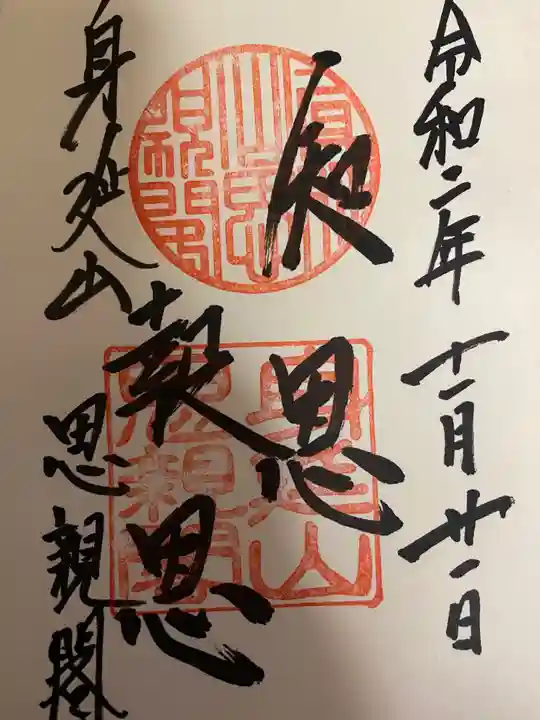 令和二年十一月廿一日
知恩
報恩
身延山
思親閣
身延山
思親閣